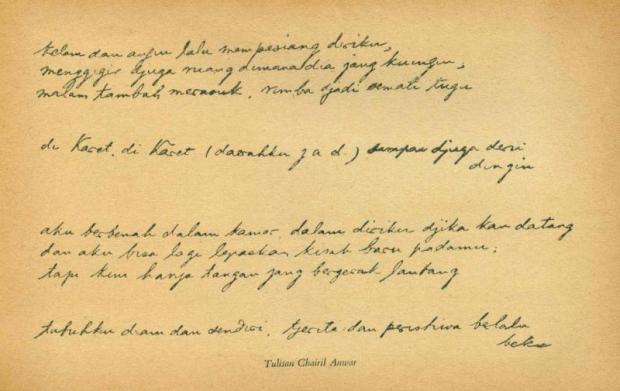 kelam dan angin lalu mempesiang diriku,
menggigir djuga ruang dimana dia jang kuingin,
malam tambah merasuk, rimba djadi semati tugu
di Karet, di Karet (daerahku j a d.) sampai djuga deru
dingin
aku berbenah dalam kamar, dalam diriku djika kau datang
dan aku bisa lagi lepaskan kisah baru padamu;
tapi kini hanja tangan jang bergerak lantang
tubuhku diam dan sendiri, tjerita dan peristiwa belalu
beku
Tulisan Chairil Anwar